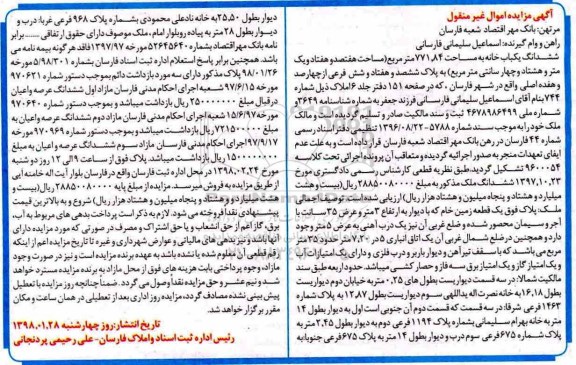 آگهی مزایده اموال غیر منقول
مرتهن: بانک مهر اقتصاد شعبه فارسان
راهن و وام گیرنده: اسماعیل سلیمانی فارسانی
ششدانگ یکباب خانه به مساحت ۷۷۱٫۸۴ متر مربع (مساحت هفتصد و هفتاد و یک
متر و هشتاد و چهار سانتی متر مربع) به پلاک ششصد و هفتاد و شش فرعی از چهارصد
و هفده اصلی واقع در شهر فارسان ، که در صفحه ۱۵۱ دفتر جلد ۶ املاک ذیل شماره
۷۴۴ بنام آقای اسماعیل سلیمانی فارسانی فرزند جعفر به شماره شناسنامه ۳۶۴۹
شماره ملی ۴۶۷۸۹۸۶۴۹۹ ثبت و سند مالکیت صادر و تسلیم گردیده است و مالک
ملک خود را به موجب سند شماره ۵۷۸۸-۱۳۹۶/۰۸/۲۲ تنظیمی دفتر اسناد رسمی
شماره ۴۴ فارسان در رهن بانک مهر اقتصاد شعبه فارسان قرار داده است و به علت عدم
ایفای تعهدات منجر به صدور اجرائیه گردیده و متعاقب آن پرونده اجرائی تحت کلاسه
۹۶۰۰۰۵۴ تشکیل گردید. طبق نظریه قطعی کارشناس رسمی دادگستری مورخ
۱۳۹۷٫۱۰٫۲۳ ششدانگ ملک مذکور به مبلغ ۲۸۸۵۰۰۸۰۰۰۰ ریال (بیست و هشت
میلیارد و هشتاد و پنجاه میلیون و هشتاد هزار ریال) ارزیابی شده است. مشخصات
ملک: پلاک فوق یک قطعه زمین خام که با دیوار به ارتفاع ۳ متر و عرض ۳۵ سانت با
آجر و سیمان محصور شده و ضلع غربی آن نیز یک درب آهنی به عرض ۵ متر وجود
دارد و همچنین در ضلع شمال غربی آن یک اتاق انباری ۵ در ۷٫۲۰ متر حدود ۳۵ متر
مربع می باشد که با سقف تیر آهن و دیوار باربر و درب فلزی و دارای یک امتیاز آب
و یک امتیاز گاز و یک امتیاز برق سه فاز و حصار کشی میباشد. حدود اربعه طبق سند
مالکیت شمالا: در سه قسمت دیواریست بطول های ۰٫۲۵ متر به خیابان دوم دیواریست
بطول ۱۶٫۱۸ به خانه نصرت اله یداللهی سوم دیواریست بطول ۱۲٫۸۷ به پلاک شماره
۱۴۶۳ فرعی شرقا: در سه قسمت که قسمت دوم آن جنوبی است اول به دیوار بطول ۱۴
متر به خانه بهرام سلیمانی بشماره پلاک ۱۱۹۴ فرعی دوم به دیوار بطول ۲٫۴۵ متر به
پلاک شماره ۶۷۵ فرعی سوم درب و دیوار بطول ۱۴ متر به پلاک ۶۷۵ فرعی جنوبا: به
دیوار بطول ۲۵٫۵۰ به خانه نادعلی محمودی بشماره پلاک ۹۶۸ فرعی غربا: درب و
دیوار بطول ۲۸ متر به پیاده رو بلوار امام ، ملک موصوف دارای حقوق ارتفاقی ...... برابر
نامه بانک مهر اقتصاد بشماره ۵۲۶۴۵۶۴۰ مورخه ۱۳۹۷/۹۷ فاقد هر گونه بیمه نامه می
باشد. همچنین برابر پاسخ استعلام اداره ثبت اسناد فارسان بشماره ۵/۹۸/۳۰۱ مورخه
۹۸/۰۱/۲۶ پلاک مذکور دارای سه مورد بازداشت دائم بموجب دستور شماره ۹۷۰۶۲۱
مورخه ۹۷/۶/۱۵ شعبه اجرای احکام مدنی فارسان مازاد اول ششدانگ عرصه و اعیان
در قبال مبلغ ۲۵۰۰۰۰۰۰۰۰ ریال بازداشت میباشد و بموجب دستور شماره ۹۷۰۶۴۰
مورخه ۱۵/۶/۹۷ شعبه اجرای احکام مدنی فارسان مازاد دوم ششدانگ عرصه و اعیان
به مبلغ ۷۲۱۵۰۰۰۰۰ ریال بازداشت میباشد و بموجب دستور شماره ۹۷۰۹۶۹ مورخه
۹۷/۹/۱۷ اجرای احکام مدنی فارسان مازاد سوم ششدانگ عرصه و اعیان به مبلغ
۱۵۰۰۰۰۰۰۰۰ ریال بازداشت میباشد. پلاک فوق از ساعت ۹ الی ۱۲ روز دو شنبه
مورخ ۱۳۹۸٫۰۲٫۲۳ در محل اداره ثبت فارسان واقع در فارسان بلوار آیت اله خامنه ایی
از طریق مزایده به فروش میرسد. مزایده از مبلغ پایه ۲۸۸۵۰۰۸۰۰۰۰ ریال (بیست و
هشت میلیارد و هشتاد و پنجاه میلیون و هشتاد هزار ریال) شروع و به بالاترین قیمت
پیشنهادی نقدا فروخته می شود. لازم به ذکر است پرداخت بدهی های مربوط به آب،
برق، گاز اعم از حق انشعاب و یا حق اشتراک و مصرف در صورتی که مورد مزایده دارای
آنها باشد و نیز بدهی های مالیاتی و عوارض شهرداری و غیره تا تاریخ مزایده اعم از اینکه
رقم قطعی آن معلوم شده یا نشده باشد به عهده برنده مزایده است و نیز در صورت وجود
مازاد، وجوه پرداختی بابت هزینه های فوق از محل مازاد به برنده مزایده مسترد خواهد
شد و نیم عشر و حق مزایده نقدا وصول می گردد. ضمنا چنانچه روز مزایده با تعطیل
پیش بینی نشده مصادف گردد، مزایده روز اداری بعد از تعطیلی در همان ساعت و مکان
مقرر برگزار خواهد شد.
تاریخ انتشار: روز چهارشنبه ۱۳۹۸٫۰۱٫۲۸
رئیس اداره ثبت اسناد و املاک فارسان - علی رحیمی پردنجانی